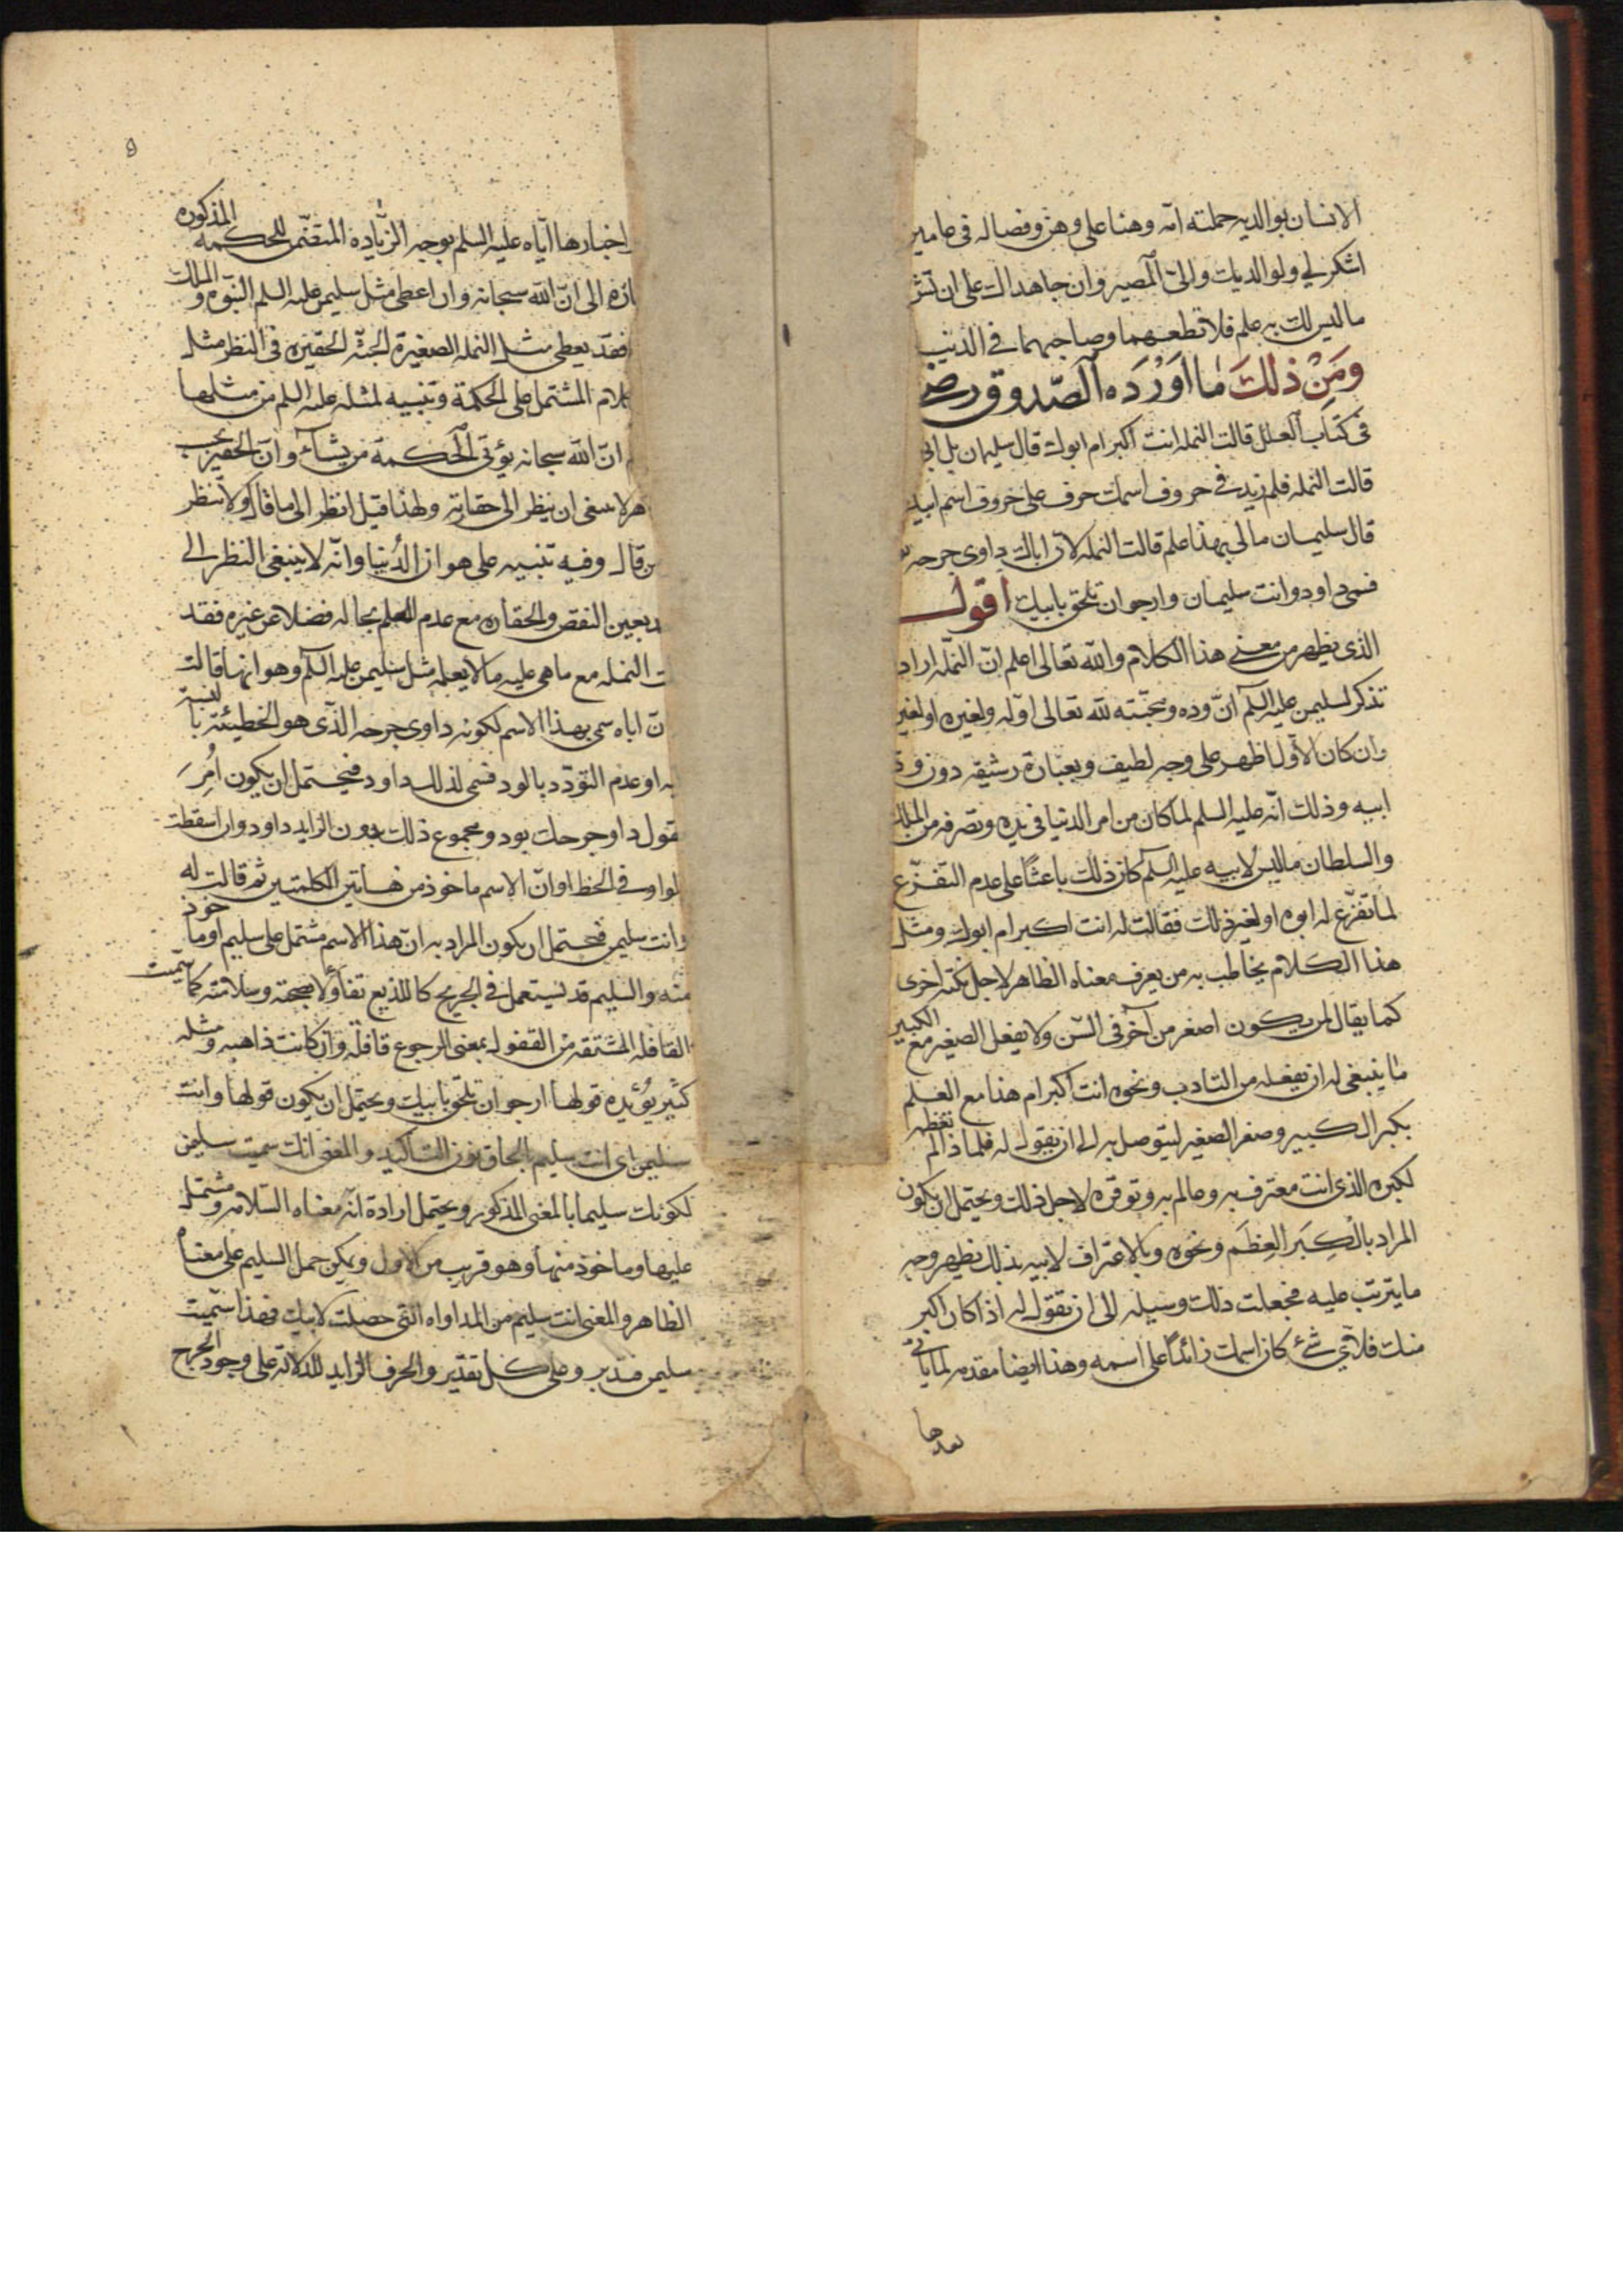 الانسان بوالديه حملته امه وهنا على وهن وفصاله فى عامين
اشكر لي ولوالديك والىّ المصير وان جاهداك على ان تشر
ماليس لك به علم فلا تطعهما وصاحبهما في الدنيا
وَمِنْ ذلكَ مٰا اَوْرَدَه الصّدوق رض
فى كتاب العلل قالت النملة انت اكبر ام ابوك قال سليمان بل ابى
قالت النملة فلم زيد في حروف اسمك حرف على حروف اسم ابيك
قال سليمان مالى بهذا علم قالت النملة لان اباك داوى جرحه
فسمى داود وانت سليمان وارجو ان تلحق بابيك اقول
الذى يظهر من معنى هذا الكلام والله تعالى اعلم انّ النملة اراد
تذكر لسليمن عليه السلم انّ وده ومحبّته لله تعالى اوله ولغيره او لغير
وان كان الاول اظهر على وجه لطيف وبعبارة رشيقه دون
ابيه وذلك انّه عليه السلم لما كان من امر الدنيا في يده وتصرفه من الملك
والسلطان ماليس لابيه عليه السلم كان ذلك باعثًا على عدم التفرّغ
لما تفرّغ له ابوه او لغير ذلك فقالت له انت اكبر ام ابوك ومثل
هذا الكلام يخاطب به من يعرف معناه الظاهر لاجل نكتة اخرى
كما يقال لمن يكون اصغر من آخر فى السّن ولا يفعل الصغير مع الكبير
ما ينبغى له ان يفعله من التادب ونحوه انت اكبر ام هذا مع العلم
بكبر الكبير وصغر الصغير ليتوصل به الى ان يقول له فلماذا لم تعظمه
لكبره الذى انت معترف به وعالم به وتوقره لاجل ذلك ويحتمل ان يكون
المراد بالكِبَر العِظَم ونحوه وبالاعتراف لابيه بذلك يظهر وجه
ما يترتب عليه فجعلت ذلك وسيله الى ان تقول له اذا كان اكبر
منك فلاىّ شئ كان اسمك زائدًا على اسمه وهذا ايضا مقدمه لما ياتى
بعدها
٩
اخبارها ايّاه عليه السلم بوجه الزّيادة المتضمّن للحكمه المذكوره
ارة الى انّ الله سبحانه وان اعطى مثل سليمن عليه السلم النبّوه والملك
فقد يعطى مثل النملة الصغيرة الجثّه الحقيره فى النظر مثل
كلام المشتمل على الحكمة وتنبيه لمثله عليه السلم من مثلها
انّ الله سبحانه يؤتى الحكمة من يشآء وانّ الحقير بحسب
هر لا ينبغى ان ينظر الى حقارته ولهذا قيل انظر الى ما قال ولا تنظر
من قال وفيه تنبيه على هوان الدُنيا وانّه لا ينبغى النظر الى
بعين النقص والحقاره مع عدم العلم بحاله فضلا عن غيره فقد
ت النملة مع ماهى عليه مالا يعلمه مثل سليمن عليه السلم وهو انها قالت
نّ اباه سمى بهذا الاسم لكونه داوى جرحه الذى هو الخطيئة بالنسبة
به او عدم التودّد بالود فسمى لذلك داود فيحتمل ان يكون اُمِرَ
قول داو جرحك بود ومجموع ذلك بدون الزايد داود وان اسقطت
لواو فى الخط او انّ الاسم ماخوذ من هاتين الكلمتين ثم قالت له
وانت سليمن فيحتمل ان يكون المراد به انّ هذا الاسم مشتمل على سليم او ماخوذ
منه والسليم قد يستعمل فى الجريح كاللذيع تفاؤلا بصحته وسلامته كما سمّيت
القافله المشتقه من القفول بمعنى الرجوع قافلة وان كانت ذاهبه ومثله
كثير يؤيده قولها ارجو ان تلحق بابيك ويحتمل ان يكون قولها وانت
سليمن اى انت سليم بالحاق نون التاكيد والمعنى انك سميت سليمن
لكونك سليما بالمعنى المذكور ويحتمل ارادة انّه معناه السّلامه ومشتمل
عليها وماخوذ منها وهو قريب من الاول ويمكن حمل السليم على معناه
الظاهر والمعنى انت سليم من المداواه التى حصلت لابيك فلهذا سمّيت
سليمن فتدبر وعلى كل تقدير والحرف الزايد للدلالة على وجود الجرح